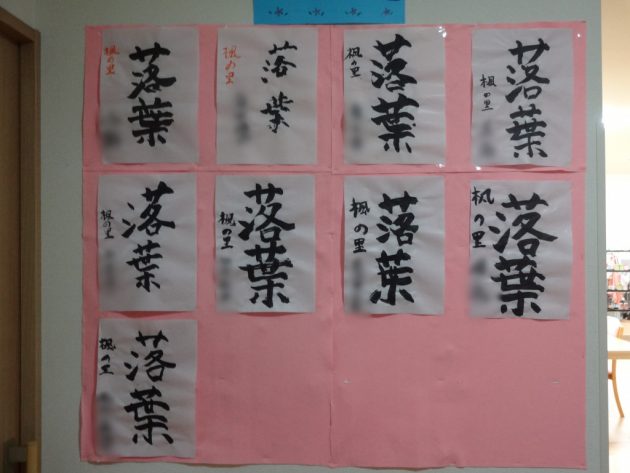 楓の里
落葉
楓の里
落葉
楓の里
落葉
楓の里
落葉
楓の里
落葉
楓の里
落葉
楓の里
落葉
楓の里
落葉
楓の里
落葉